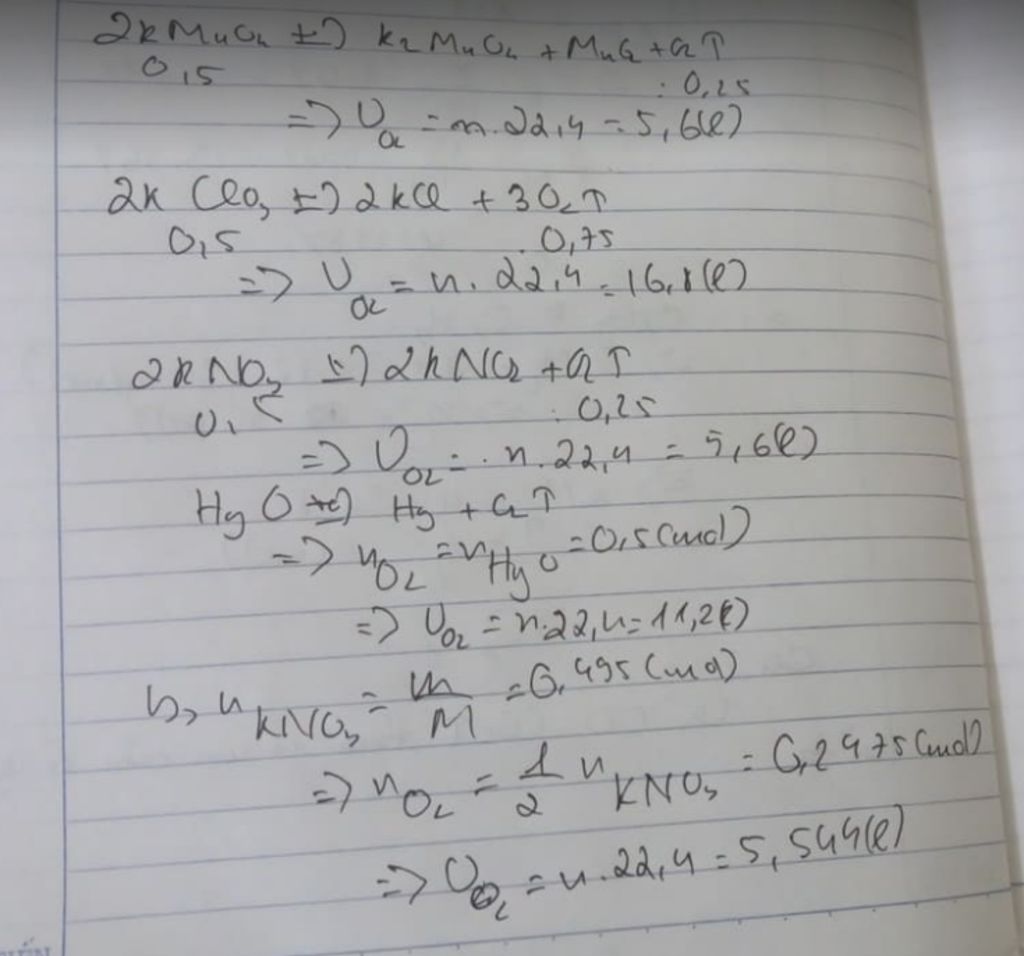 2KMnO4 t°→ K2MnO4 + MnO2 + O2↑
0,5 : 0,25
=> V O2 = n.22,4 = 5,6(l)
2KClO3 t°→ 2KCl + 3O2↑
0,5 0,75
=> V O2 = n.22,4 = 16,8(l)
2KNO3 t°→ 2KNO2 + O2↑
0,5 : 0,25
=> V O2 = n.22,4 = 5,6(l)
HgO t°→ Hg + O2↑
=> n O2 = n HgO = 0,5(mol)
=> V O2 = n.22,4 = 11,2(l)
b, n KNO3 = m/M = 0,495(mol)
=> n O2 = 1/2 n KNO3 = 0,2475(mol)
=> V O2 = n.22,4 = 5,544(l)